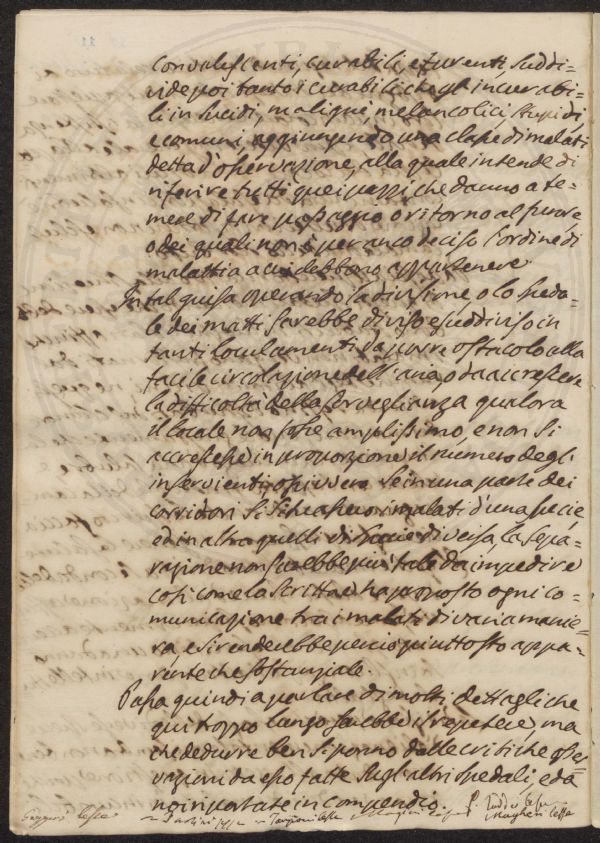 convalescenti, curabili, e furenti, suddi=
vide poi tanto i curabili che gl'incurabi=
li in lucidi, maligni, melancolici stupidi,
e comuni, aggiungendo una classe di malati
detta d'osservazione, alla quale intende di
riferire tutti quei pazzi che danno a te=
mere di fare passaggio o ritorno al furore,
o dei quali non è per anco deciso l'ordine di
malattia a cui debbono appartenere.
In tal guisa operando la divisione, o lo speda=
le dei matti sarebbe diviso e suddiviso in
tanti loculamenti da porre ostacolo alla
facile circolazione dell'aria, o da accrescere
la difficoltà della sorveglianza qualora
il locale non fosse amplissimo, e non si
accrescesse in proporzione il numero degli
inservienti, oppivvero se in una parte dei
corridori si schiassero i malati d'una specie
ed in altra quelli di specie diversa, la sepa=
razione non sarebbe più tale da impedire
così come la scritta ha proposto ogni co=
municazione tra i malati di varia manie=
ra, e si renderebbe perciò piuttosto appa=
rente che sostanziale.
Passa quindi a parlare di molti dettagli che
qui troppo lungo sarebbe il ripetere, ma
che dedurre ben si ponno dalle critiche osser
vazioni da esso fatte sugli altri spedali, e da
noi riportate in compendio.